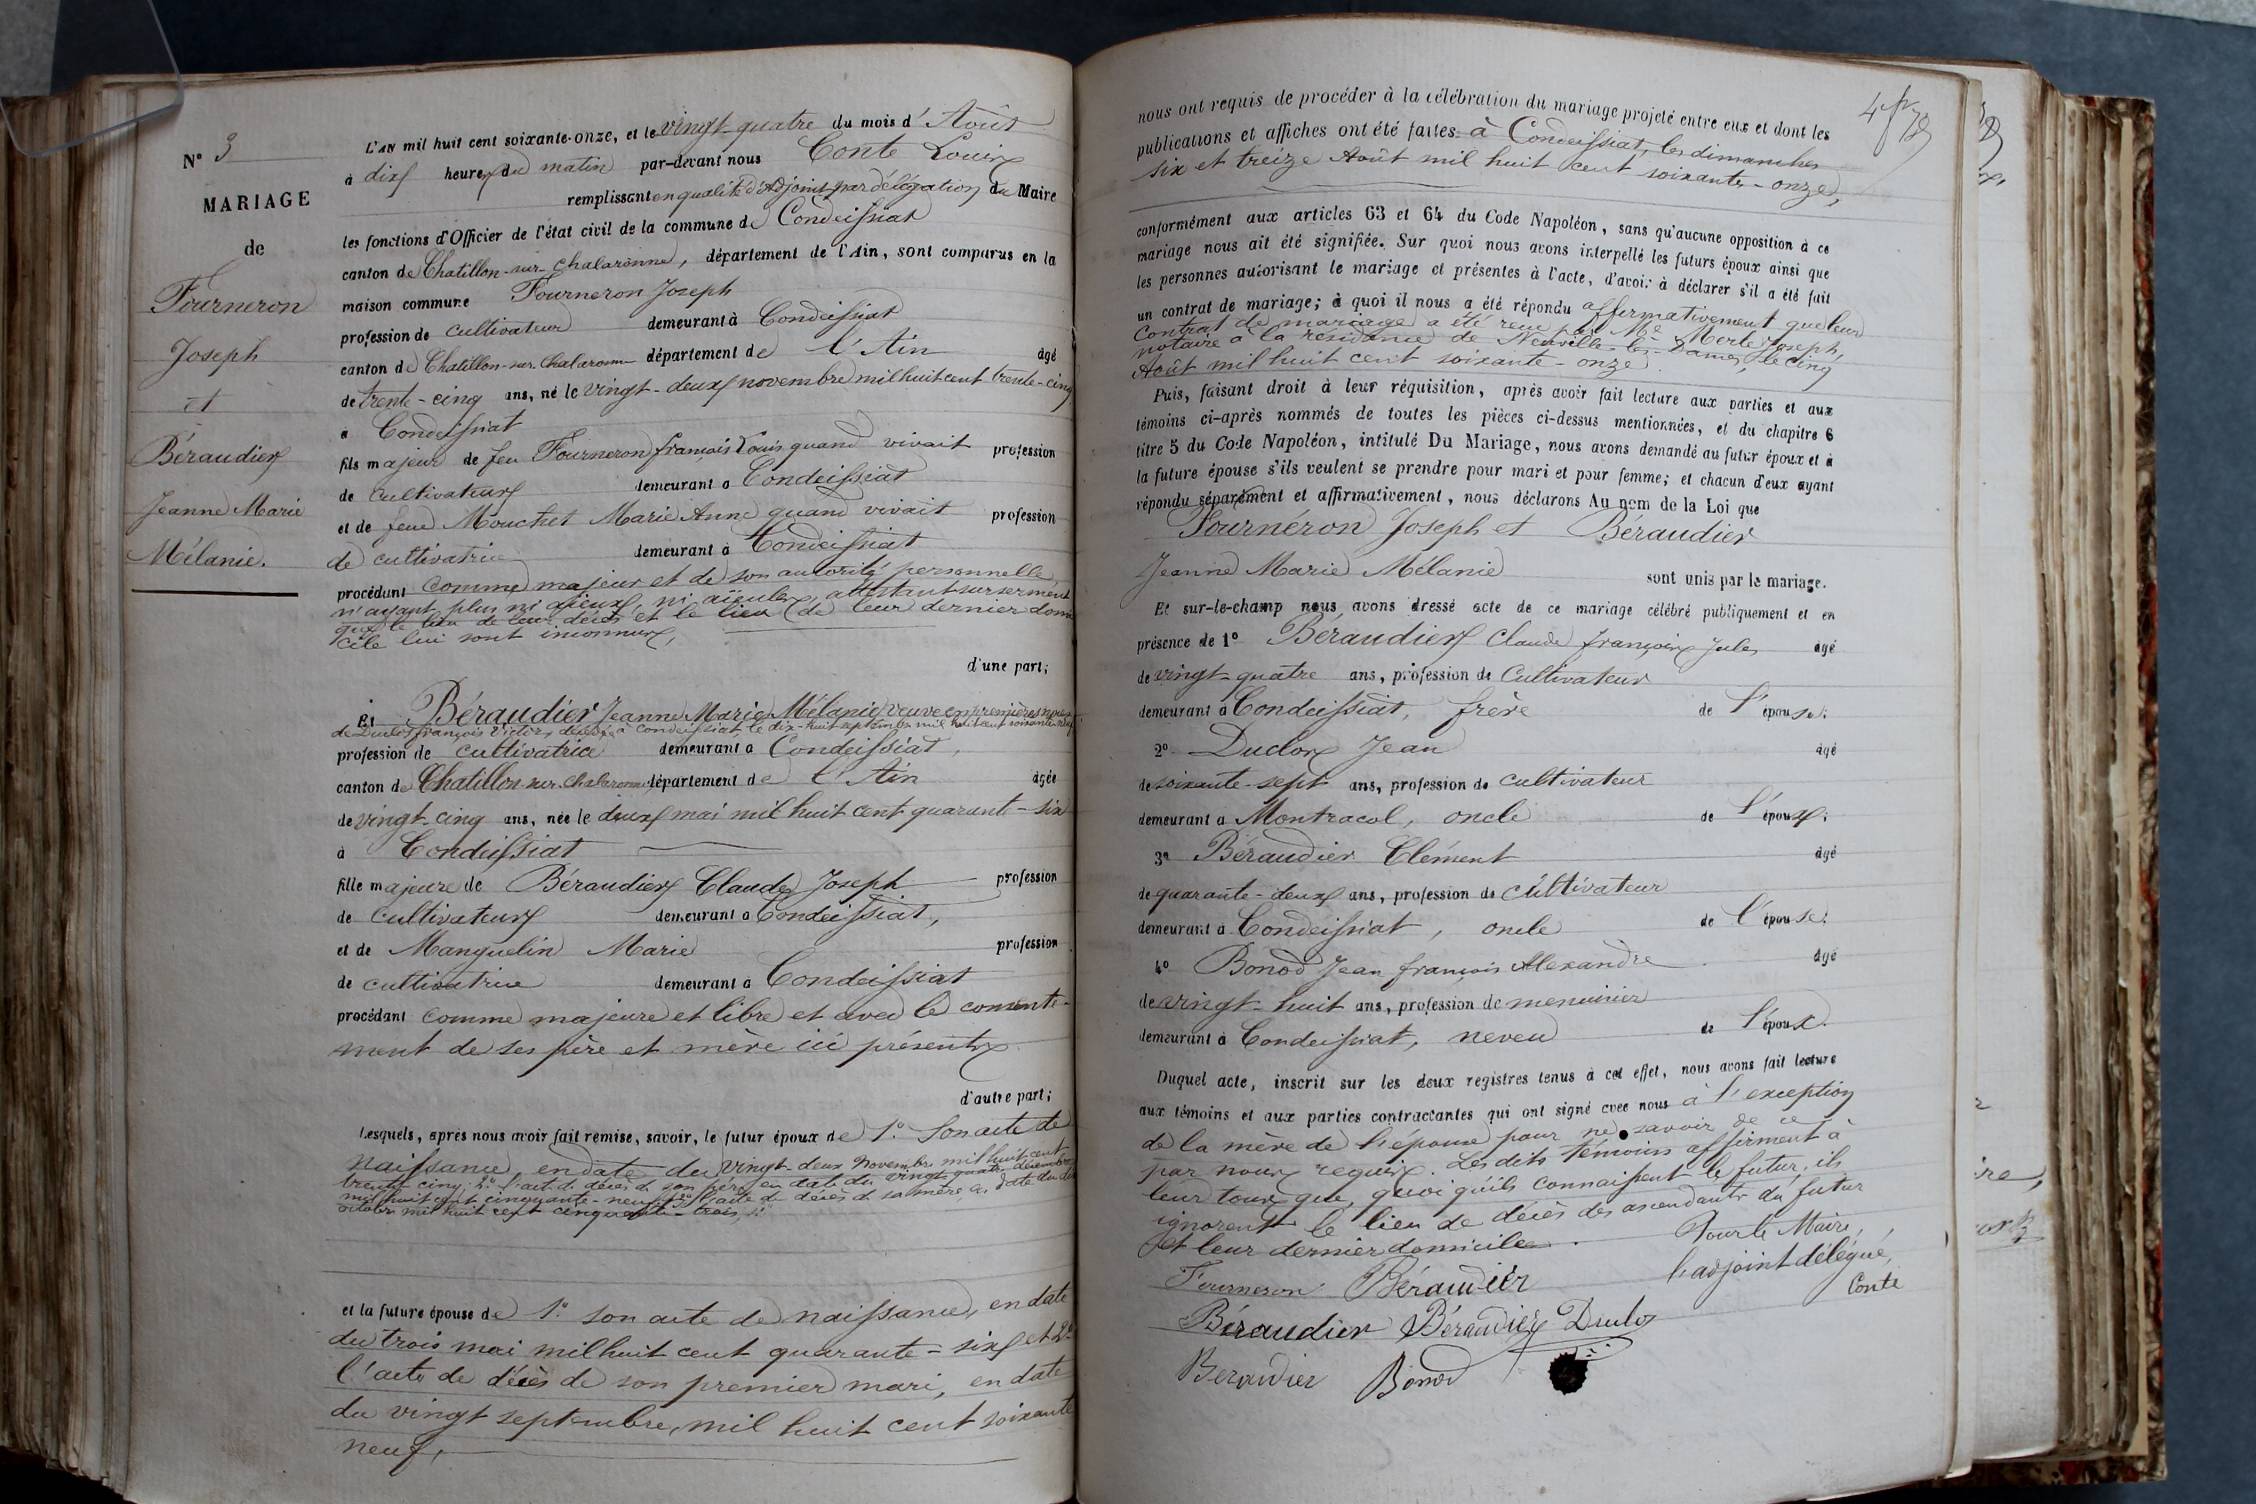 N° 3
MARIAGE
de
Fourneron
Joseph
et
Béraudier
Jeanne Marie
Mélanie.
L'AN mil huit cent soixante-onze, et le vingt-quatre du mois d'Août
à dix heures du matin par-devant nous Conte Louis
remplissant en qualité d'Adjoint par délégation du Maire
les fonctions d'Officier de l'état civil de la commune de Condeissiat
canton de Chatillon-sur-Chalaronne, département de l'Ain, sont comparus en la
maison commune Fourneron Joseph
profession de cultivateur demeurant à Condeissiat
canton de Chatillon-sur-Chalaronne département de l'Ain âgé
de trente-cinq ans, né le vingt-deux novembre mil huit cent trente-cinq
à Condeissiat
fils majeur de feu Fourneron françois Louis quand vivait profession
de cultivateur demeurant à Condeissiat
et de feue Mouchet Marie Anne quand vivait profession
de cultivatrice demeurant à Condeissiat
procédant comme majeur et de son autorité personnelle,
n'ayant plus ni aïeux, ni aïeules, attestant sur serment
que le lieu de leur décès et le lieu de leur dernier domi
cile lui sont inconnus,
d'une part;
Et Béraudier Jeanne Marie Mélanie, veuve en premières noces
de Duclos françois Victor, décédé à Condeissiat, le dix-huit septembre mil huit cent soixante neuf
profession de cultivatrice demeurant à Condeissiat,
canton de Chatillon-sur-Chalaronne département de l'Ain âgée
de vingt-cinq ans, née le deux mai mil huit cent quarante-six
à Condeissiat
fille majeure de Béraudier Claude Joseph profession
de cultivateur demeurant à Condeissiat,
et de Manguelin Marie profession
de cultivatrice demeurant à Condeissiat
procédant comme majeure et libre et avec le consente-
ment de ses père et mère ici présents
d'autre part;
Lesquels, après nous avoir fait remise, savoir, le futur époux de 1° Son acte de
naissance en date du vingt-deux Novembre mil huit cent
trente cinq; 2° l'acte de décès de son père, en date du vingt quatre décembre
mil huit cent cinquante-neuf; 3° l'acte de décès de sa mère, en date du
octobre mil huit cent cinquante-trois,
et la future épouse de 1° son acte de naissance, en date
du trois mai mil huit cent quarante-six et 2°
l'acte de décès de son premier mari, en date
du vingt septembre, mil huit cent soixante
neuf,
nous ont requis de procéder à la célébration du mariage projeté entre eux et dont les
publications et affiches ont été faites à Condeissiat, les dimanches
six et treize Août mil huit cent soixante-onze,
conformément aux articles 63 et 64 du Code Napoléon, sans qu'aucune opposition à ce
mariage nous ait été signifiée. Sur quoi nous avons interpellé les futurs époux ainsi que
les personnes autorisant le mariage et présentes à l'acte, d'avoir à déclarer s'il a été fait
un contrat de mariage; à quoi il nous a été répondu affirmativement que leur
contrat de mariage a été reçu par Me Merle Joseph,
notaire à la résidence de Neuville-les-Dames, le cinq
Août mil huit cent soixante-onze.
Puis, faisant droit à leur réquisition, après avoir fait lecture aux parties et aux
témoins ci-après nommés de toutes les pièces ci-dessus mentionnées, et du chapitre 6
titre 5 du Code Napoléon, intitulé Du Mariage, nous avons demandé au futur époux et à
la future épouse s'ils veulent se prendre pour mari et pour femme; et chacun d'eux ayant
répondu séparément et affirmativement, nous déclarons Au nom de la Loi que
Fournéron Joseph et Béraudier
Jeanne Marie Mélanie sont unis par le mariage.
Et sur-le-champ nous avons dressé acte de ce mariage célébré publiquement et en
présence de 1° Béraudier Claude françois Jules âgé
de vingt-quatre ans, profession de Cultivateur
demeurant à Condeissiat, frère de l'épouse;
2° Duclos Jean âgé
de soixante-sept ans, profession de cultivateur
demeurant à Montracol, oncle de l'époux;
3° Béraudier Clément âgé
de quarante-deux ans, profession de cultivateur
demeurant à Condeissiat, oncle de l'épouse;
4° Bonod Jean françois Alexandre âgé
de vingt-huit ans, profession de menuisier
demeurant à Condeissiat, neveu de l'époux.
Duquel acte, inscrit sur les deux registres tenus à cet effet, nous avons fait lecture
aux témoins et aux parties contractantes qui ont signé avec nous à l'exception
de la mère de l'épouse pour ne savoir de ce
par nous requise. Les dits témoins affirment à
leur tour que, quoiqu'ils connaissent le futur, ils
ignorent le lieu de décès des ascendants du futur
et leur dernier domicile.
Pour le Maire,
l'adjoint délégué,
Conte
Fourneron Béraudier
Béraudier Béraudier Duclos
Beraudier Bonod